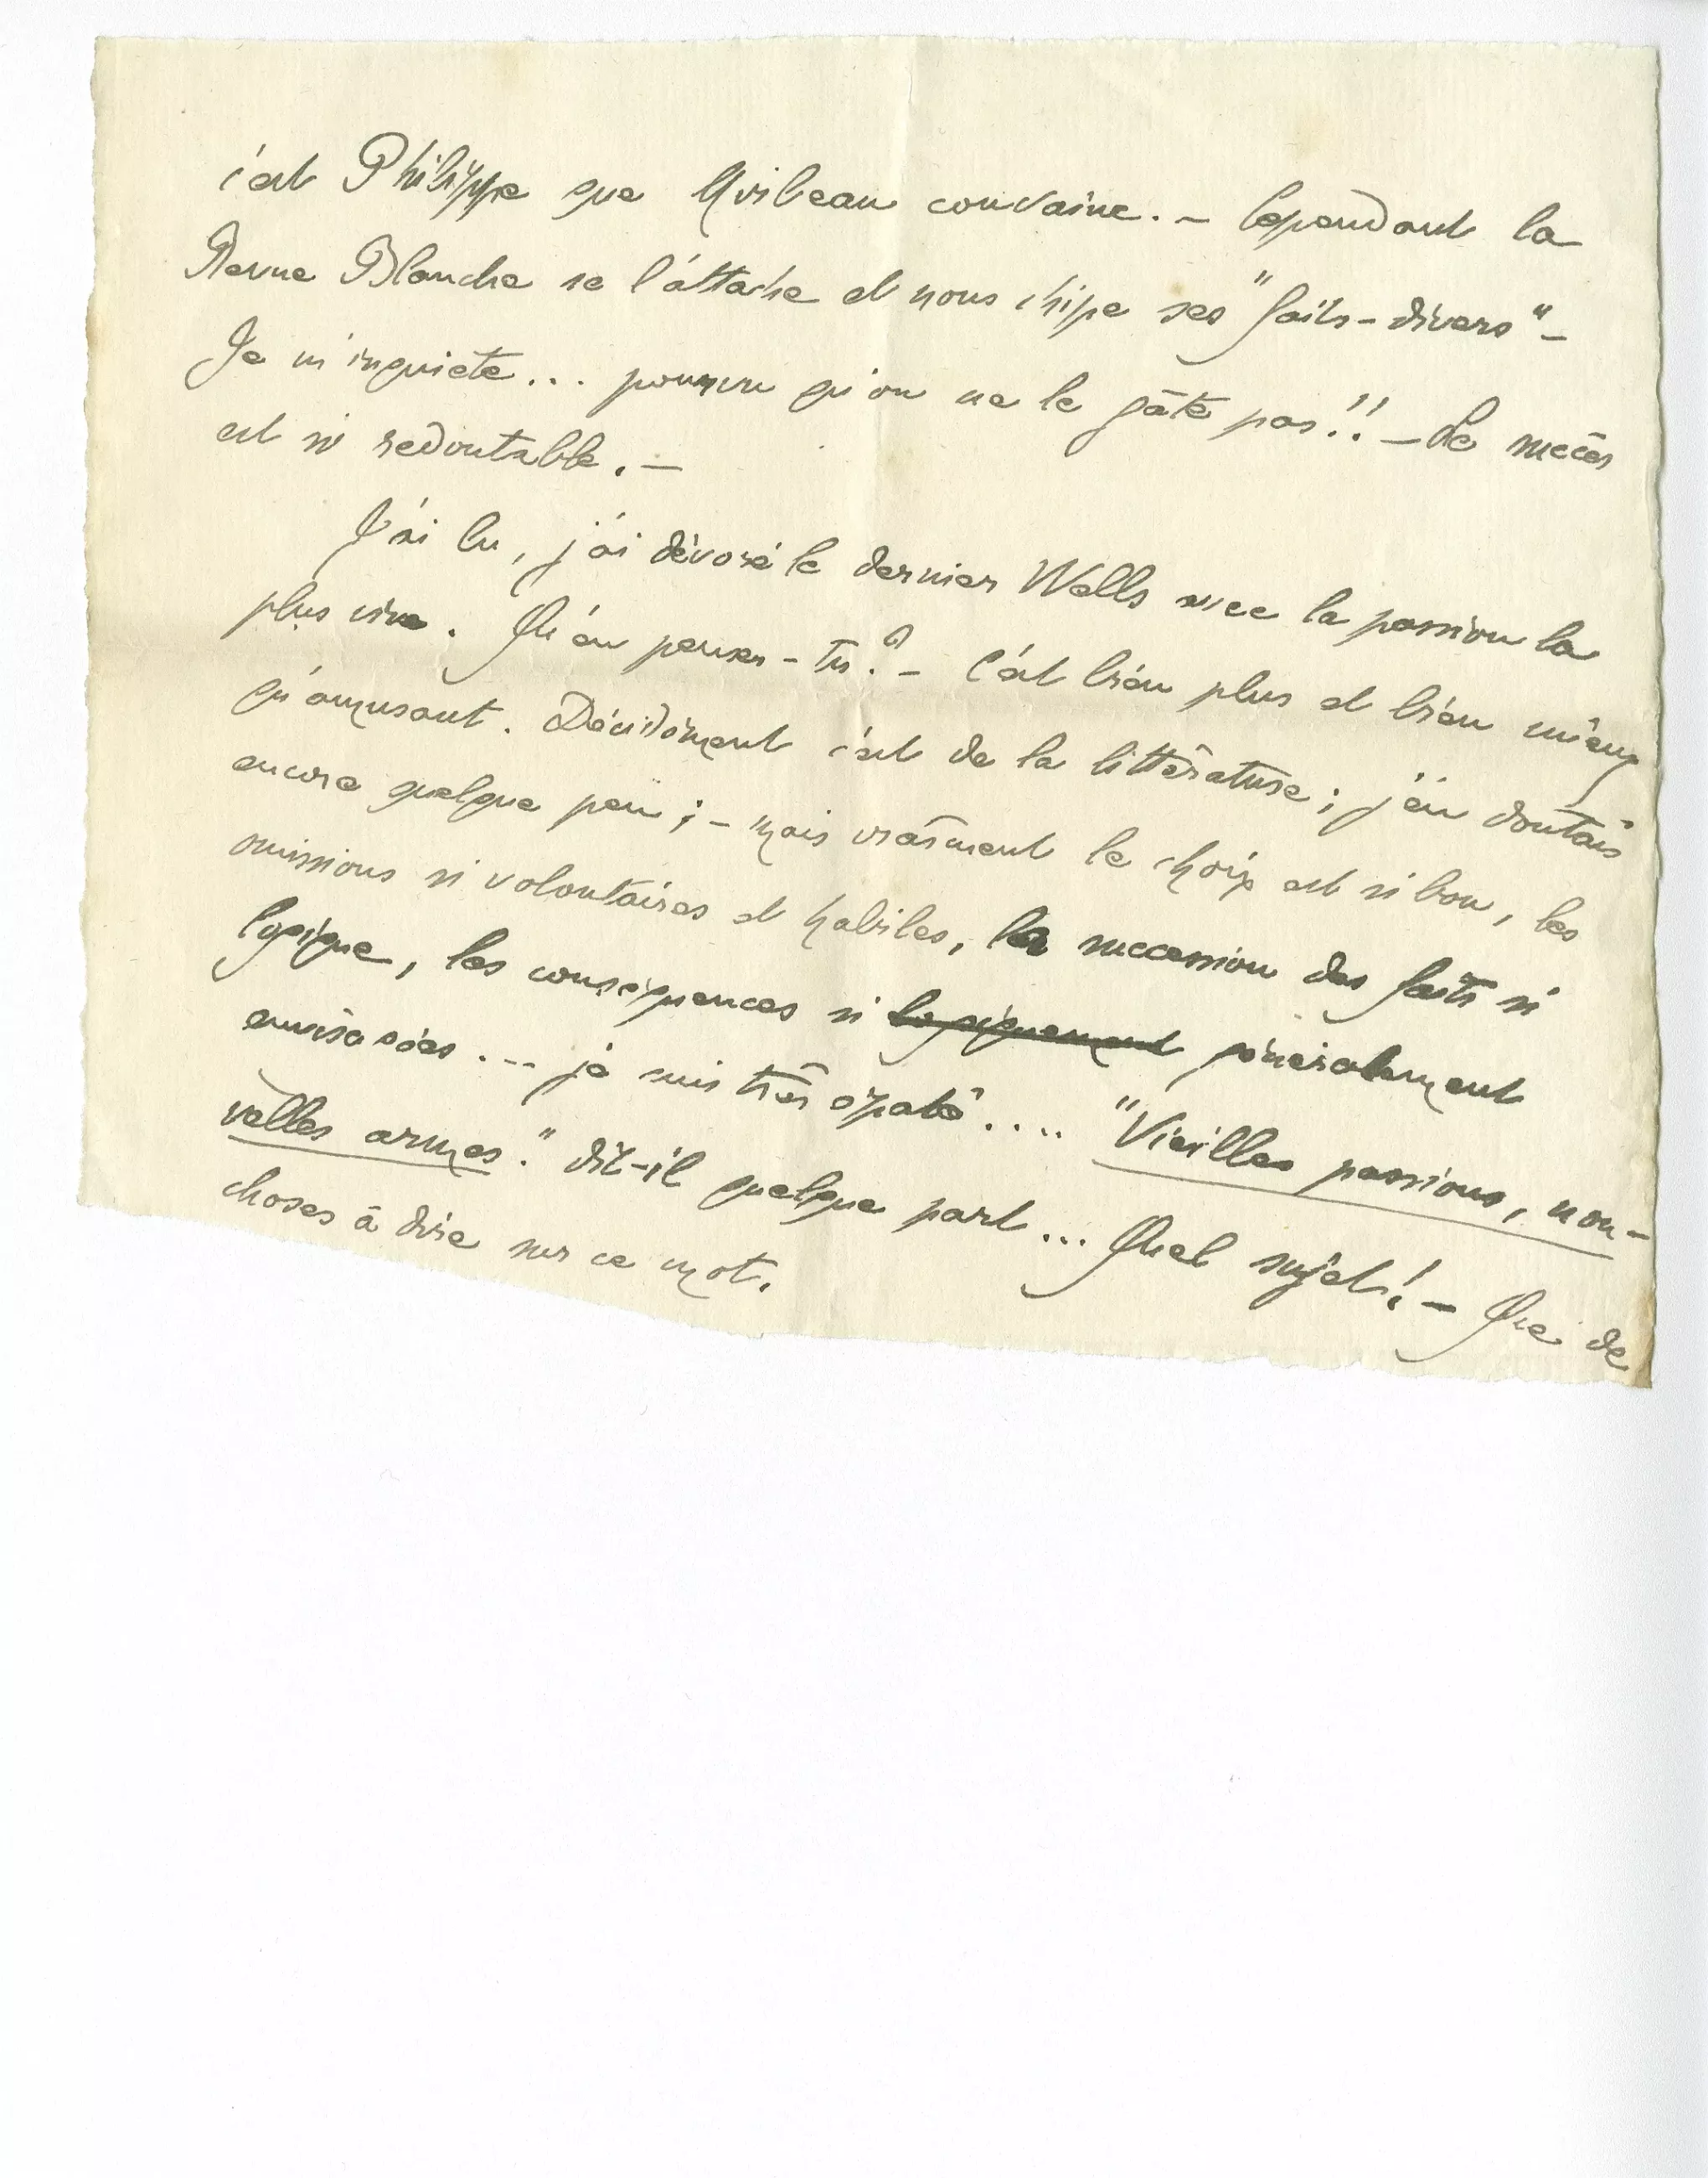 c'est Philippe que Mirbeau convainc. – Cependant la
Revue Blanche se l'attache et nous chipe ses "faits-divers" –
Je m'inquiète... pourvu qu'on ne le gâte pas!! – Le succès
est si redoutable. –
J'ai lu, j'ai dévoré le dernier Wells avec la passion la
plus vive. Qu'en penses-tu? – C'est bien plus et bien mieux
qu'amusant. Décidément c'est de la littérature; j'en doutais
encore quelque peu; – mais vraiment le choix est si bon, les
omissions si volontaires et habiles, la succession des faits si
logique, les conséquences si logiquement généralement
envisagées... je suis très épaté.... "Vieilles passions, nou-
velles armes." dit-il quelque part... Quel sujet! – Que de
choses à dire sur ce mot.